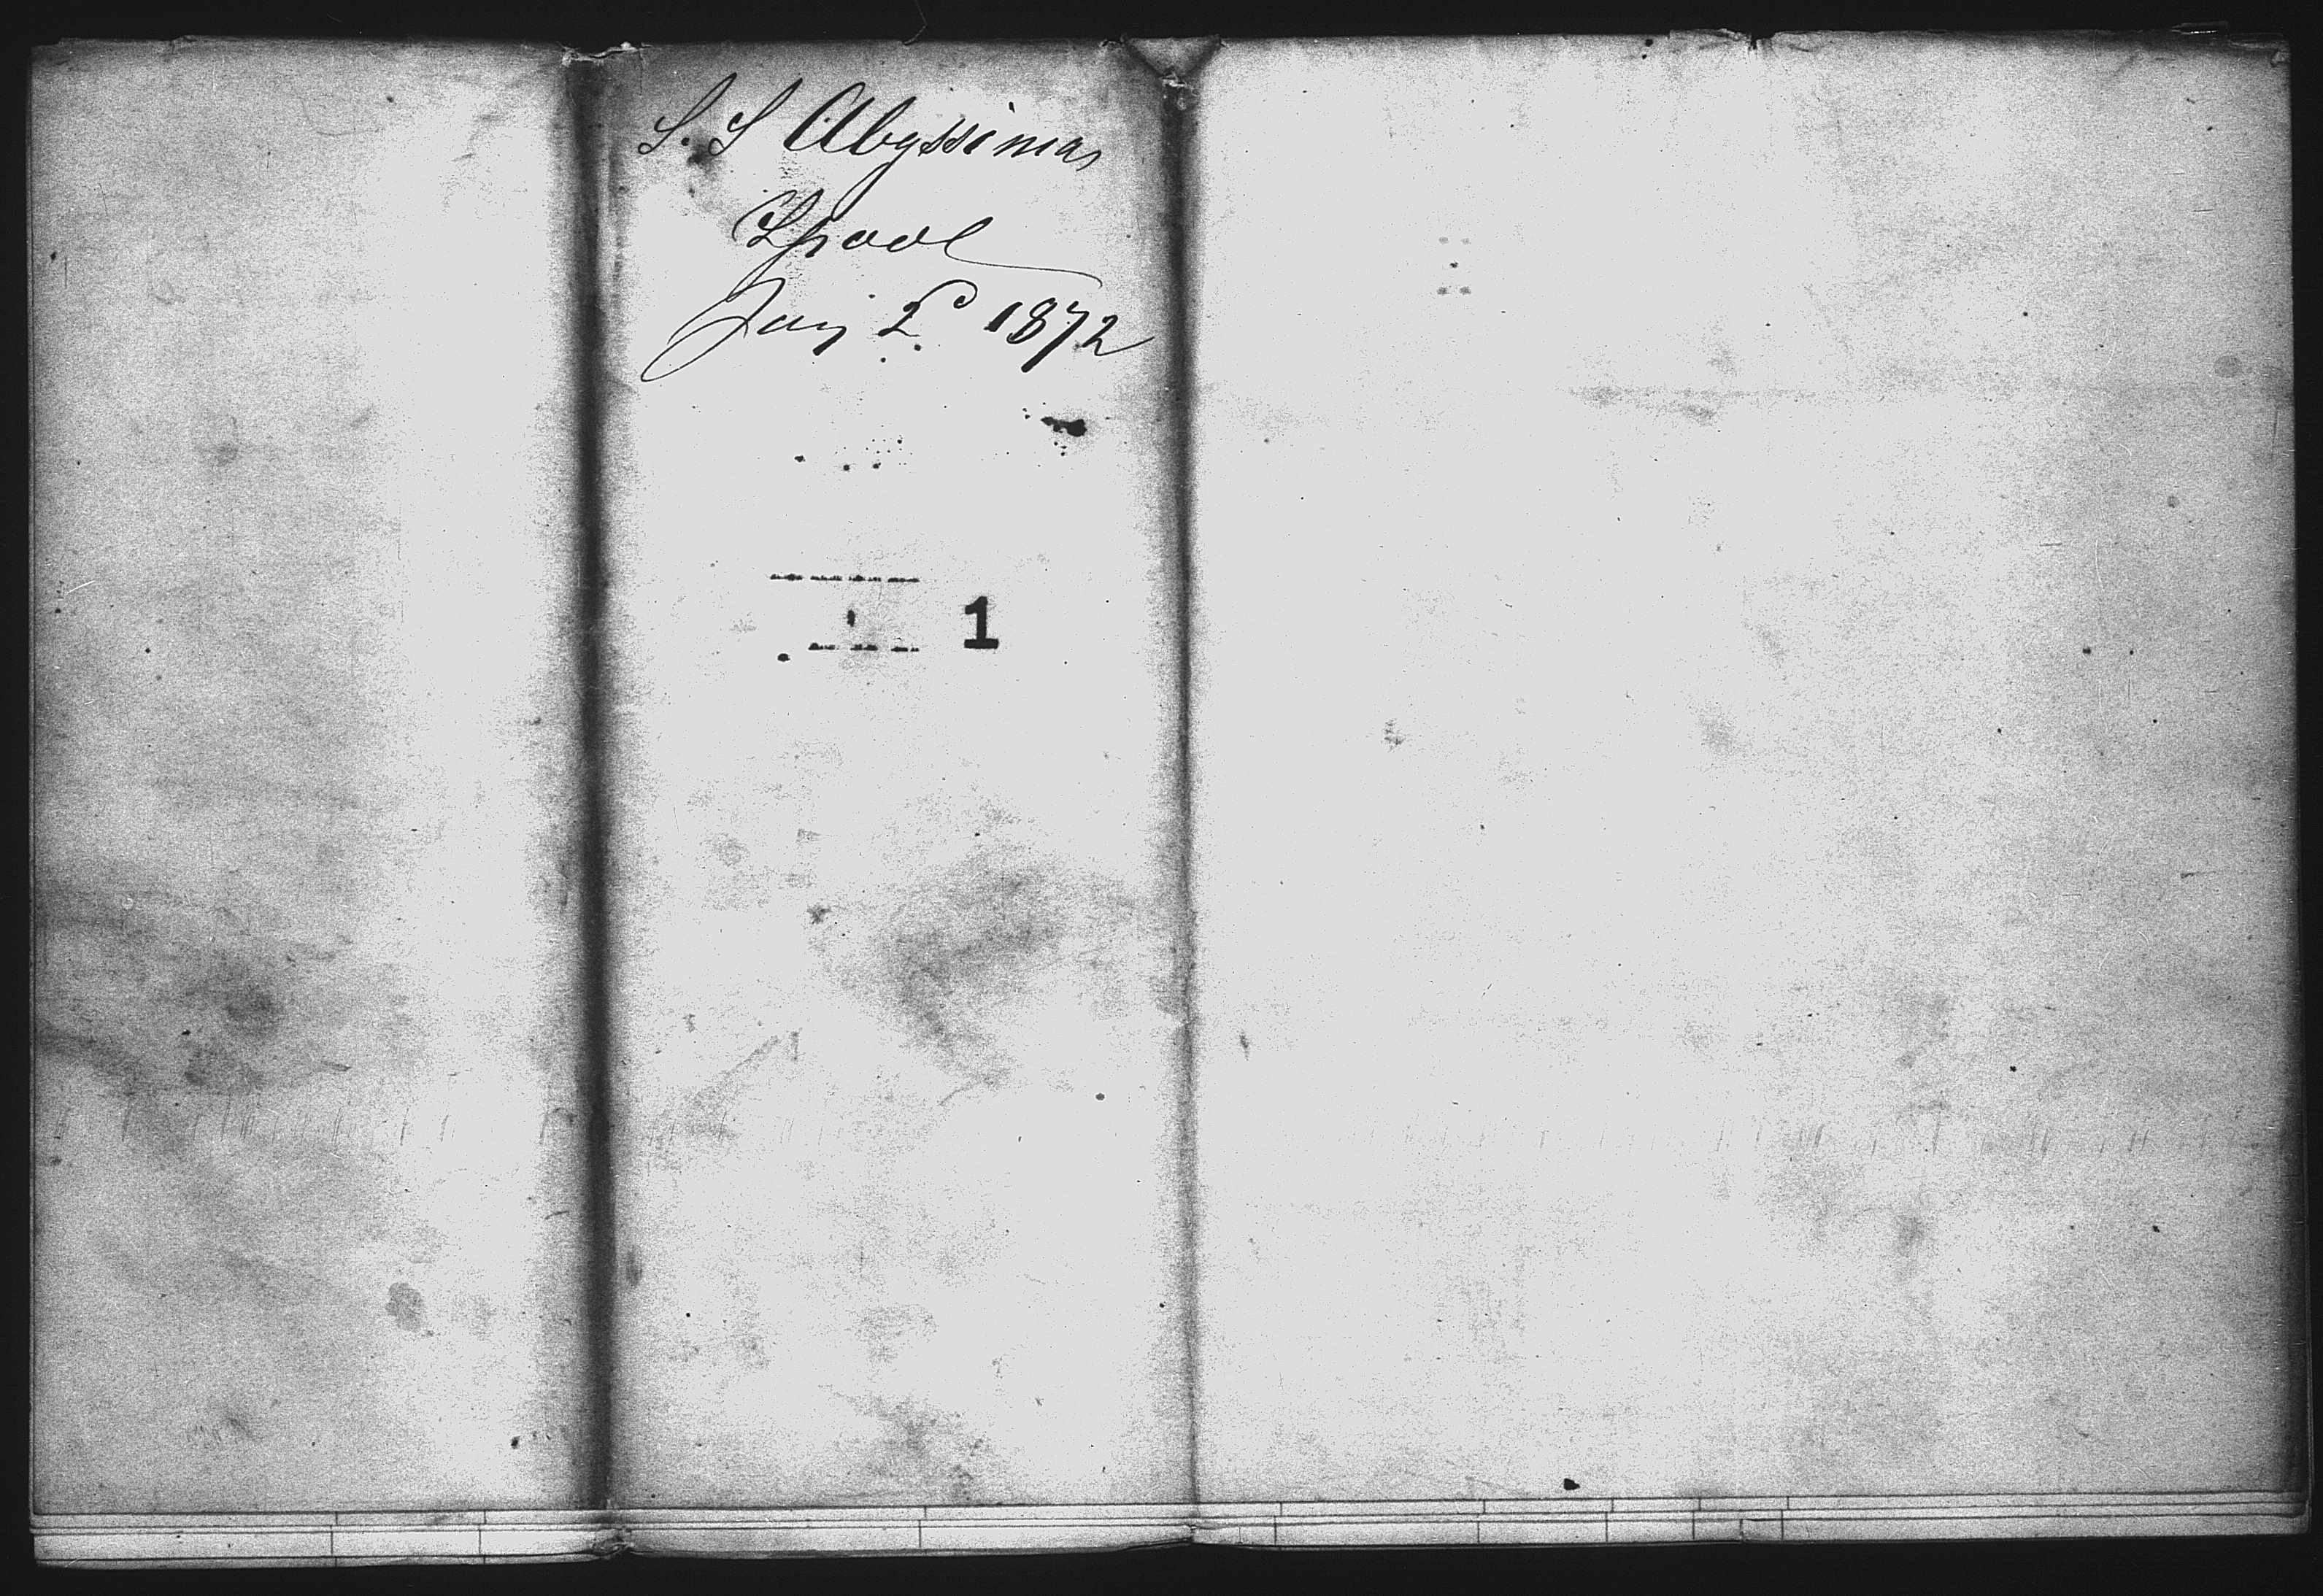 S. S Abyssinia
Lpool
Jany 2d 1872
1